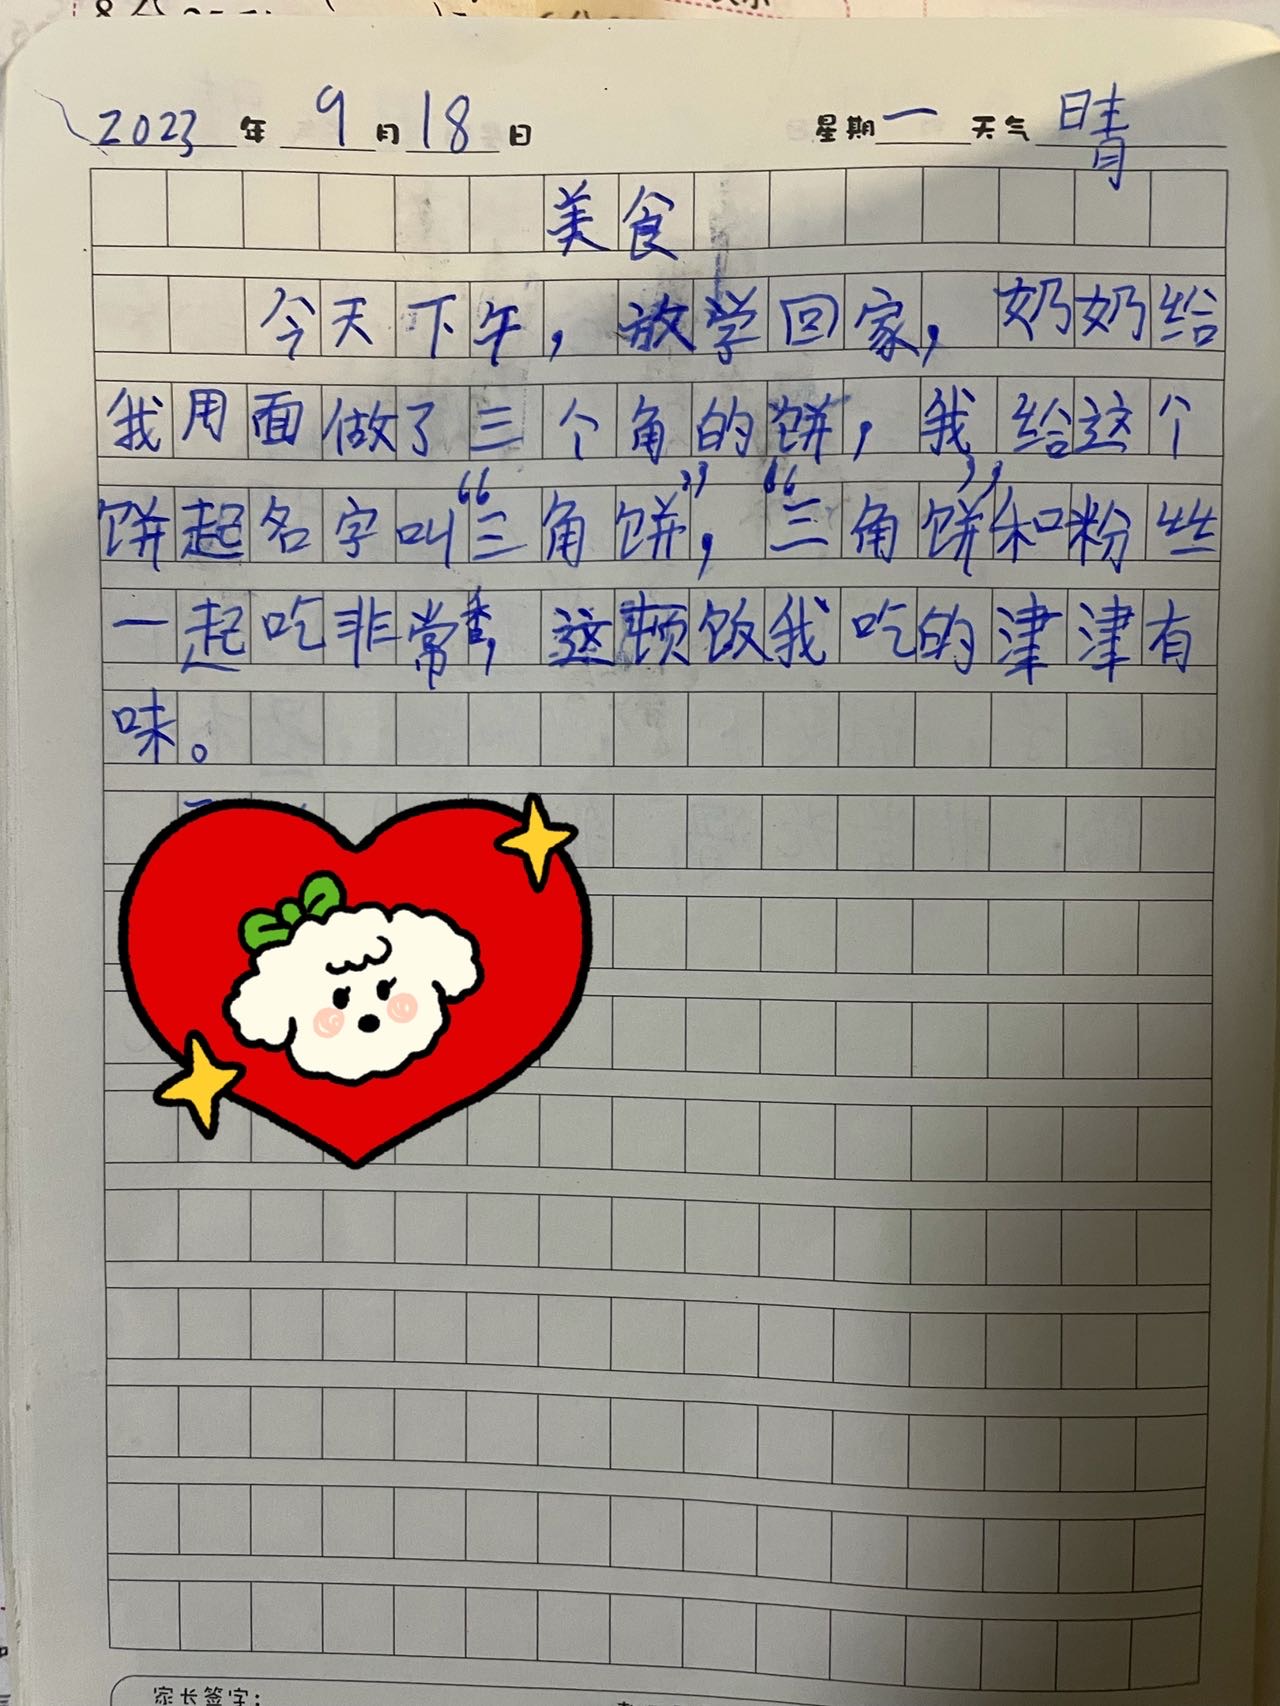 2023年9月18日 星期一 天气晴
美食
今天下午，放学回家，奶奶给
我用面做了三个角的饼，我给这个
饼起名字叫“三角饼”，“三角饼”和粉丝
一起吃非常香，这顿饭我吃的津津有
味。
家长签字：